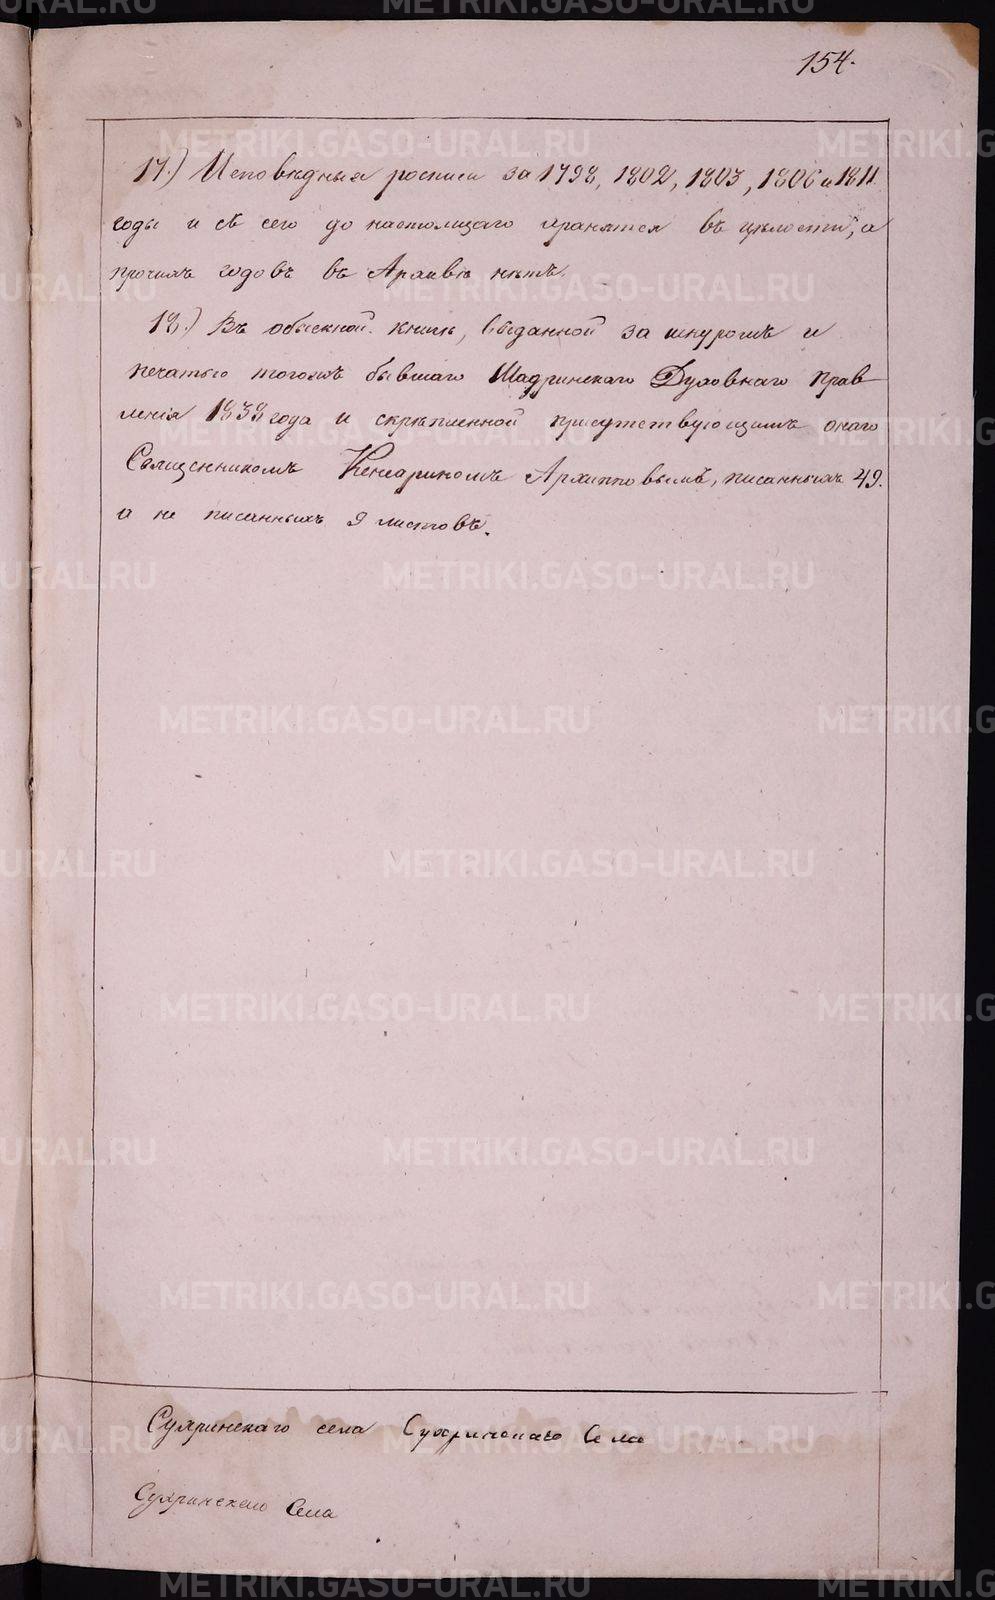 154.
17.) Исповѣдныя росписи за 1798, 1802, 1803, 1806 и 1811
годы и съ сего до настоящаго хранятся въ цѣлости, а
прочихъ годовъ въ Архивѣ нѣтъ.
18.) Въ обыскной книгѣ, выданной за шнуромъ и
печатью тогожъ бывшаго Шадринскаго Духовнаго Прав
ленія 1838 года и скрѣпленной присутствующимъ онаго
Священникомъ Архипповымъ, писанныхъ 49.
а не писанныхъ 9 листовъ.
Сухринскаго села Сухринскаго Села
Сухринскаго Села
METRIKI.GASO-URAL.RU